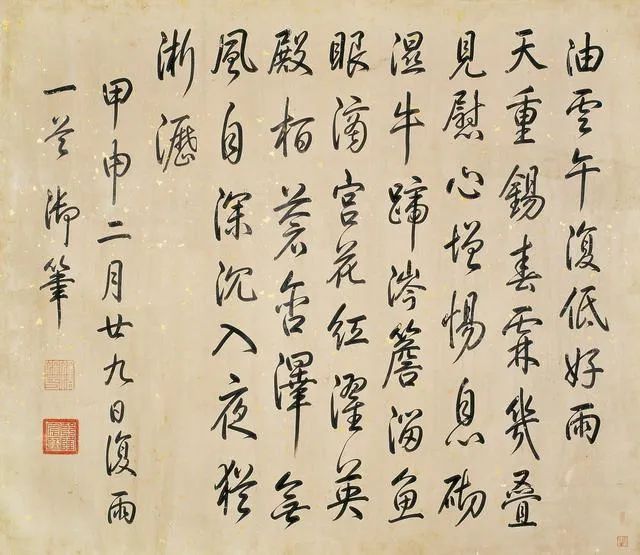 油雲午復低好雨
天重錫春霖幾疊
見慰心增惕息砌
濕牛蹄涔簷溜魚
眼滴宮花紅濯英
殿栢蒼含澤無
風自深沉入夜猶
淅瀝
甲申二月廿九日復雨
一首御筆